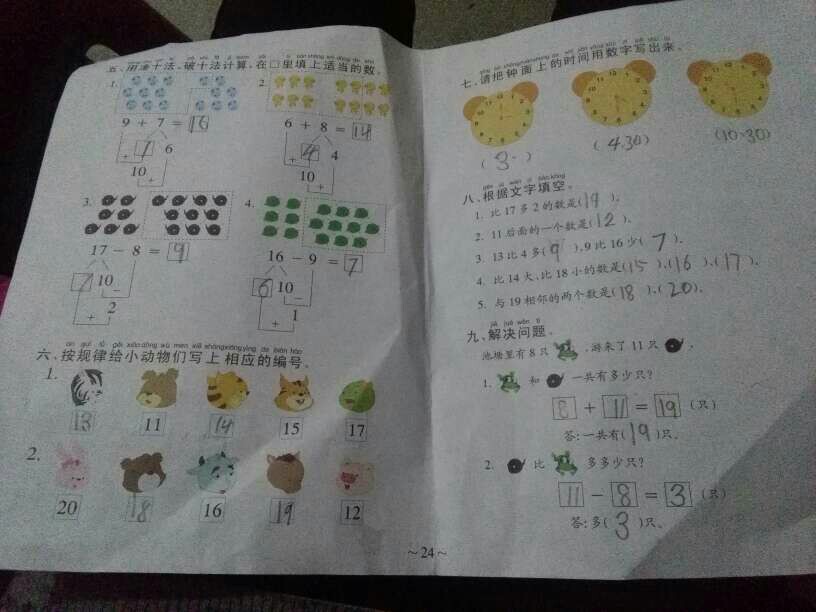 五、用凑十法、破十法计算,在□里填上适当的数。
1.
9 + 7 = 16
1 6
+
10
+
2.
6 + 8 = 14
4 4
+
10
+
3.
17 - 8 = 9
7 10
-
+
2
4.
16 - 9 = 7
6 10
-
+
1
六、按规律给小动物们写上相应的编号。
1.
13 11 14 15 17
2.
20 18 16 19 12
七、请把钟面上的时间用数字写出来。
( 3 ) ( 4:30 ) ( 10:30 )
八、根据文字填空。
1. 比17多2的数是(19)。
2. 11后面的一个数是(12)。
3. 13比4多(9),9比16少(7)。
4. 比14大、比18小的数是(15)、(16)、(17)。
5. 与19相邻的两个数是(18)、(20)。
九、解决问题。
池塘里有8只 ,游来了11只 。
1. 和 一共有多少只?
8 + 11 = 19 (只)
答:一共有(19)只。
2. 比 多多少只?
11 - 8 = 3 (只)
答:多(3)只。
~24~